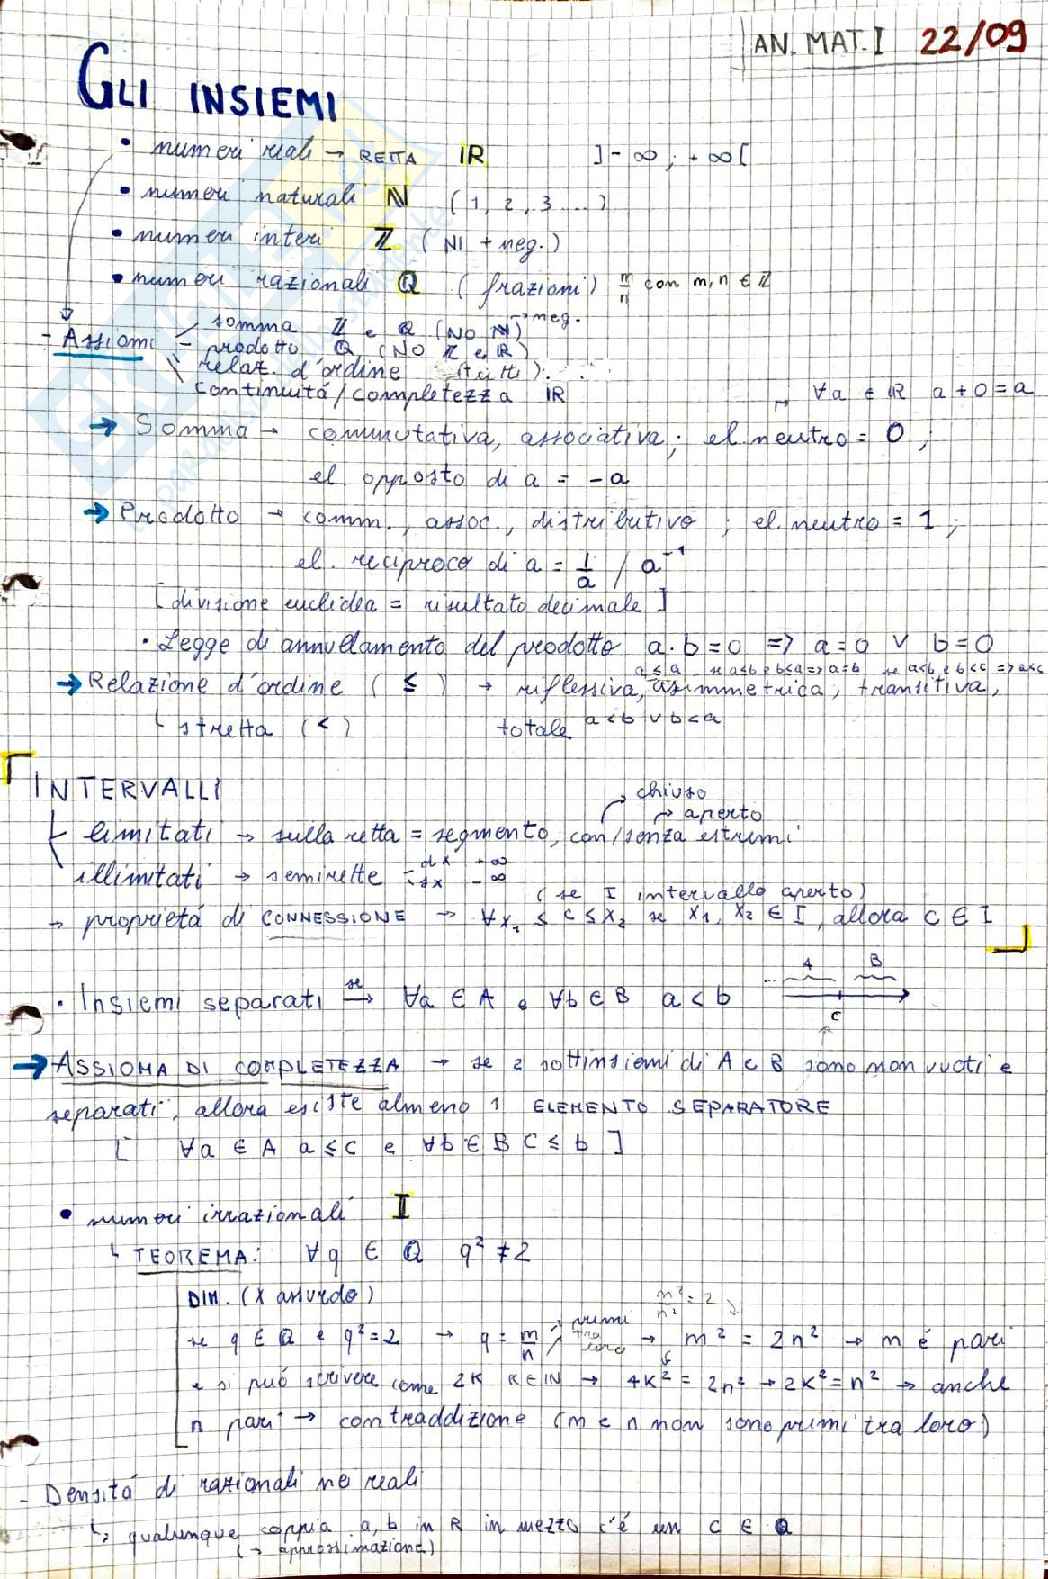 AN. MAT. I 22/09
GLI INSIEMI
• numeri reali → RETTA ℝ ]-∞; +∞[
• numeri naturali ℕ (1, 2, 3....)
• numeri interi ℤ (ℕ + neg.)
• numeri razionali ℚ (frazioni) m/n con m, n ∈ ℤ
- Assiomi
somma ℤ e ℚ (NO ℕ) → neg.
prodotto ℚ (NO ℤ e ℝ)
relaz. d'ordine (tutti)
continuitá/completezza ℝ
→ ∀a ∈ ℝ a+0=a
→ Somma → commutativa, associativa; el. neutro = 0;
el opposto di a = -a
→ Prodotto → comm., assoc., distributivo; el. neutro = 1;
el. reciproco di a = 1/a / a⁻¹
[divisione euclidea = risultato decimale]
• Legge di annullamento del prodotto a·b=0 => a=0 ∨ b=0
a≤a se a≤b e b≤a => a=b se a≤b e b≤c => a≤c
→ Relazione d'ordine (≤) → riflessiva, asimmetrica, transitiva,
↳ stretta (<) totale a<b ∨ b<a
INTERVALLI
→ chiuso
→ aperto
limitati → sulla retta = segmento, con/senza estremi
illimitati → semirette dx +∞
sx -∞
(se I intervallo aperto)
→ proprietá di CONNESSIONE → ∀x₁ ≤ c ≤ x₂ se x₁, x₂ ∈ I, allora c ∈ I
A B
• Insiemi separati se→ ∀a ∈ A e ∀b ∈ B a < b
c
→ ASSIOMA DI COMPLETEZZA → se 2 sottinsiemi di A e B sono non vuoti e
separati, allora esiste almeno 1 ELEMENTO SEPARATORE
[ ∀a ∈ A a ≤ c e ∀b ∈ B c ≤ b ]
• numeri irrazionali I
↳ TEOREMA: ∀q ∈ ℚ q² ≠ 2
DIM. (x assurdo) m²/n² = 2
se q ∈ ℚ e q²=2 → q = m/n, primi tra loro → m² = 2n² → m é pari
e si può scrivere come 2K K∈ℕ → 4K² = 2n² → 2K² = n² → anche
n pari → contraddizione (m e n non sono primi tra loro)
- Densitá di razionali nei reali
↳ qualunque coppia a, b in ℝ in mezzo c'é un c ∈ ℚ
(→ approssimazione)